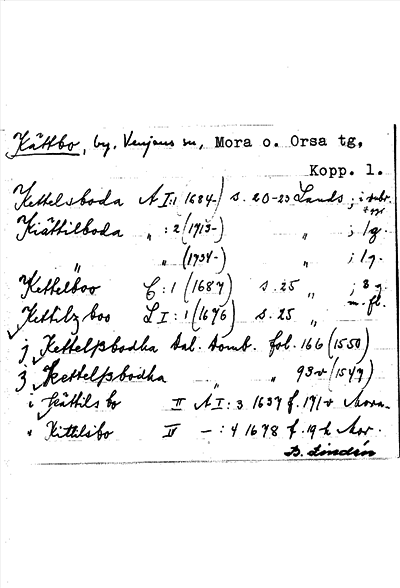 Kättbo, by, Venjans sn, Mora o. Orsa tg,
Kopp. l.
Kettelsboda A I:1 (1684-) s. 20-23 Lands ; i
Kiättilboda „ : 2 (1715-) „ ; 1 g.
„ „ (1734-) „ ; 1 g.
Kettelboo C : 1 (1687) s. 25 „ ; 8 g.
m. fl.
Kettilzboo L I : 1 (1676) s. 25 „
j Kettelßbodha Dal. tomb. fol. 166 (1550)
j Kettelßbodha „ „ 93 v (1547)
i Kättilsbo II A I : 3 1637 f. 171 v Mora
„ Kittilsbo IV — : 4 1678 f. 19 h Mor.
B. Lindén